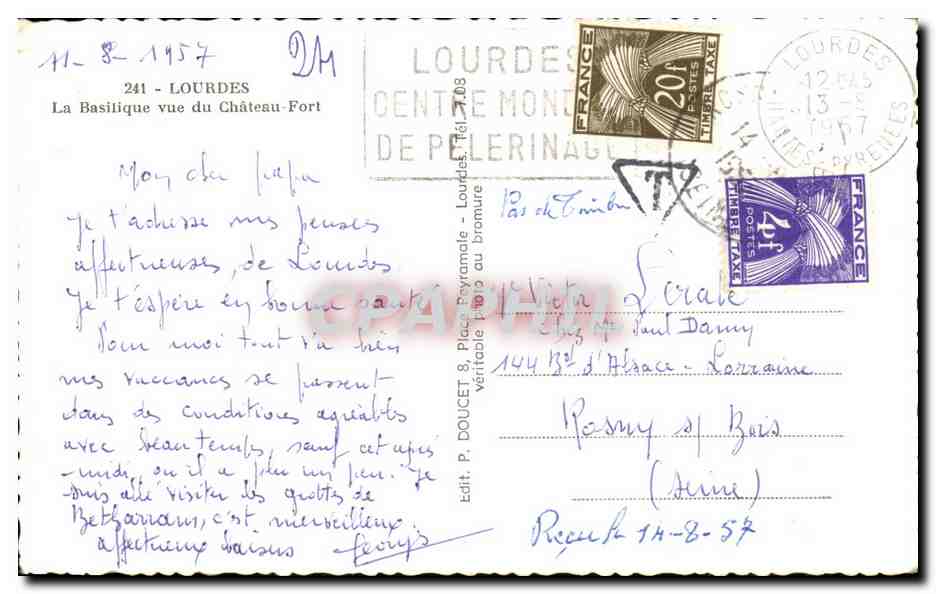 11-8-1957
24
241 - LOURDES
La Basilique vue du Château-Fort
Mon cher papa
Je t'adresse mes pensées
affectueuses, de Lourdes.
Je t'espère en bonne santé
Pour moi tout va bien
mes vaccances se passent
dans des conditions agréables
avec beau temps, sauf cet après
-midi, où il a plu un peu. Je
suis allé visiter les grottes de
Betharram, c'est merveilleux.
affectueux baisers Georges
Edit. P. DOUCET 8, Place Peyramale - Lourdes. Tél. 7.08
véritable photo au bromure
LOURDES
CENTRE MOND
DE PELERINAGE
FRANCE
20f
POSTES
TIMBRE TAXE
LOURDES
13-8
1957
HAUTES-PYRENEES
14
T
FRANCE
4f
POSTES
TIMBRE TAXE
Pas de Timbre
Mr Victor Lerale
chez Mr Paul Damy
144 Bd d'Alsace-Lorraine
Rosny s/ Bois
(Seine)
Reçu le 14-8-57
CPAPHIL